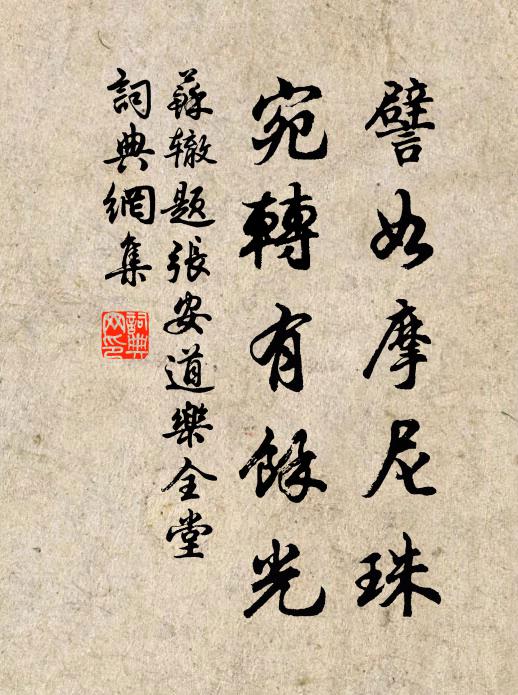 譬如摩尼珠
宛轉有餘光
蘇辙题張安道樂全堂
詞典網集
詞典
网印